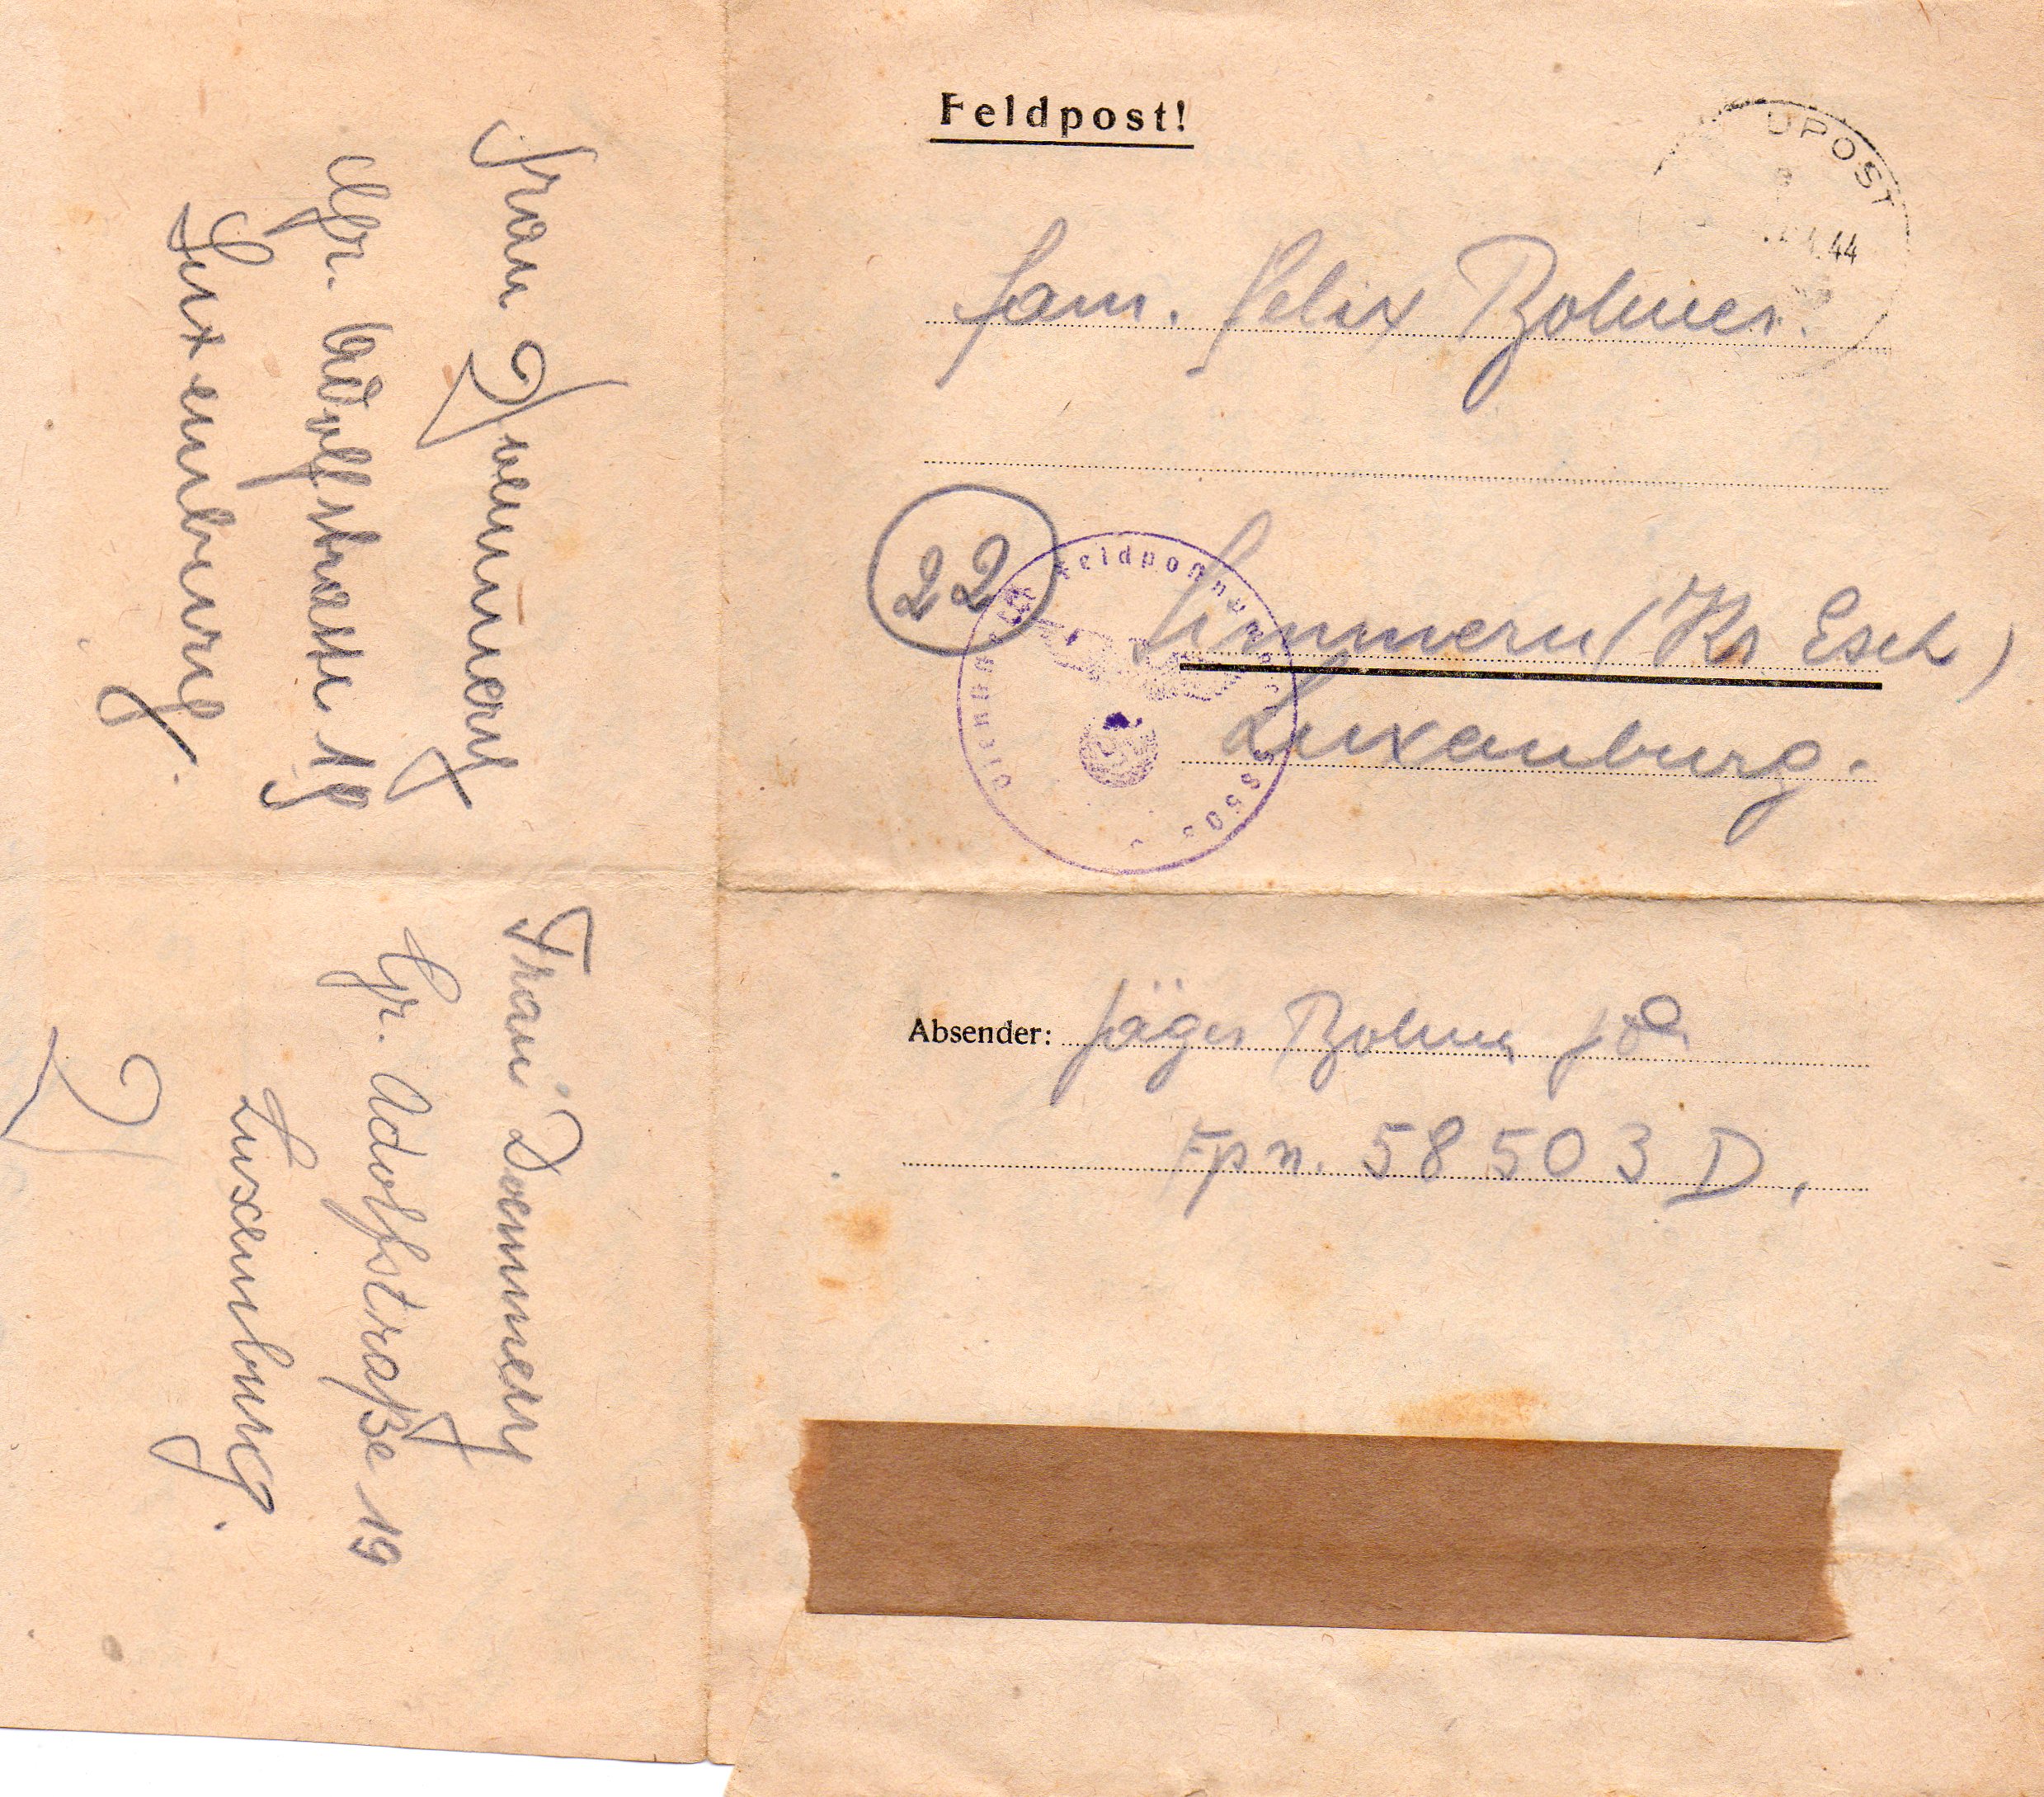 Feldpost!
UPOST
44
Fam. Felix Bohmer.
22
Feldpostnummer
Simmern (Kr Esch)
Luxemburg.
Absender: Jäger Bohmer
Fpn. 58503 D.
Frau Doemmer
Gr. Adolfstrasse 19
Luxemburg.
Frau Doemmer
Gr. Adolfstraße 19
Luxemburg.